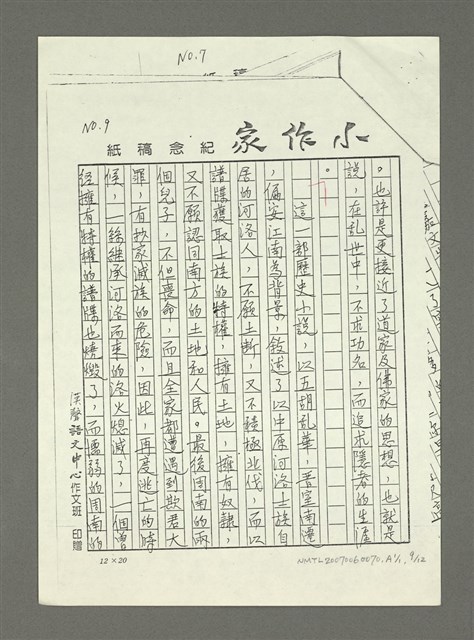 NO.7
NO.9
小作家 紀念稿紙
。也許是更接近了道家及佛家的思想,也就是
說,在亂世中,不求功名,而追求隱者的生涯
。
這一部歷史小說,以五胡亂華,晉室南遷
,偏安江南為背景,敘述了以中原河洛士族自
居的河洛人,不願土斷,又不積極北伐,而以
譜牒獲取士族的特權,擁有土地,擁有奴隸,
又不願認同南方的土地和人民。最後周南的兩
個兒子,不但喪命,而且全家都遭遇到欺君大
罪,有抄家滅族的危險,因此,再度逃亡的時
候,一絲繼承河洛而來的洛火熄滅了,一個曾
經擁有特權的譜牒也燒燬了,而懦弱的周南的
漢聲語文中心作文班 印贈
12×20
NMTL20070060070,A1/1, 9/12